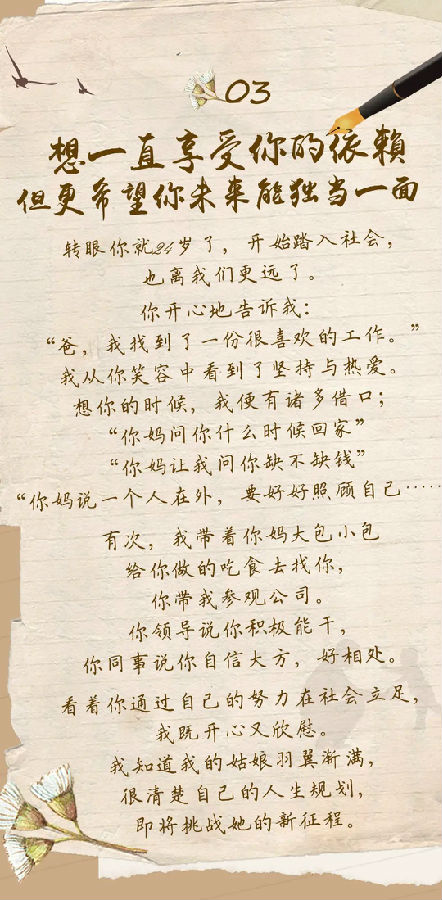 03
想一直享受你的依賴
但更希望你未来能独当一面
转眼你就24岁了，开始踏入社会，
也离我们更远了。
你开心地告诉我：
“爸，我找到了一份很喜欢的工作。”
我从你笑容中看到了坚持与热爱。
想你的时候，我便有诸多借口；
“你妈问你什么时候回家”
“你妈让我问你缺不缺钱”
“你妈说一个人在外，要好好照顾自己……
有次，我带着你妈大包小包
给你做的吃食去找你，
你带我参观公司。
你领导说你积极能干，
你同事说你自信大方，好相处。
看着你通过自己的努力在社会立足，
我既开心又欣慰。
我知道我的姑娘羽翼渐满，
很清楚自己的人生规划，
即将挑战她的新征程。